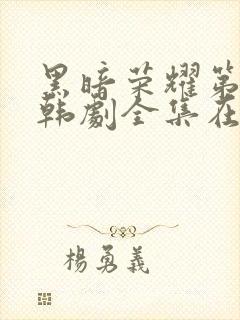 黑暗荣耀第
韩剧全集在
杨勇義